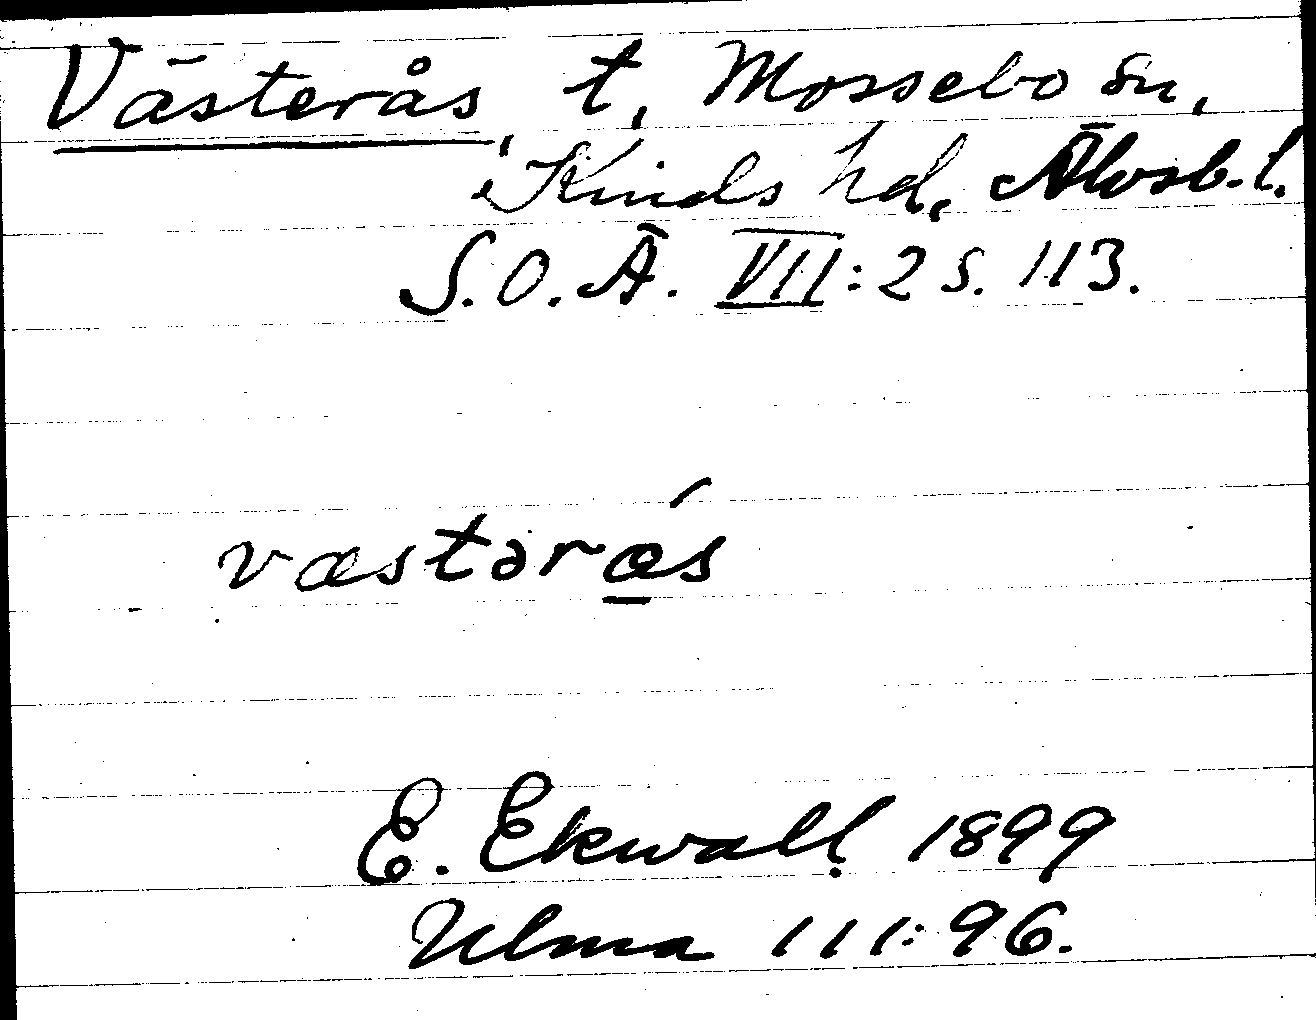 Västerås, t, Mossebo sn,
Kinds hd, Älvsb. l.
S.O.Ä. VII:2 s. 113.
væstərǿs
E. Ekwall 1899
Ulma 111:96.